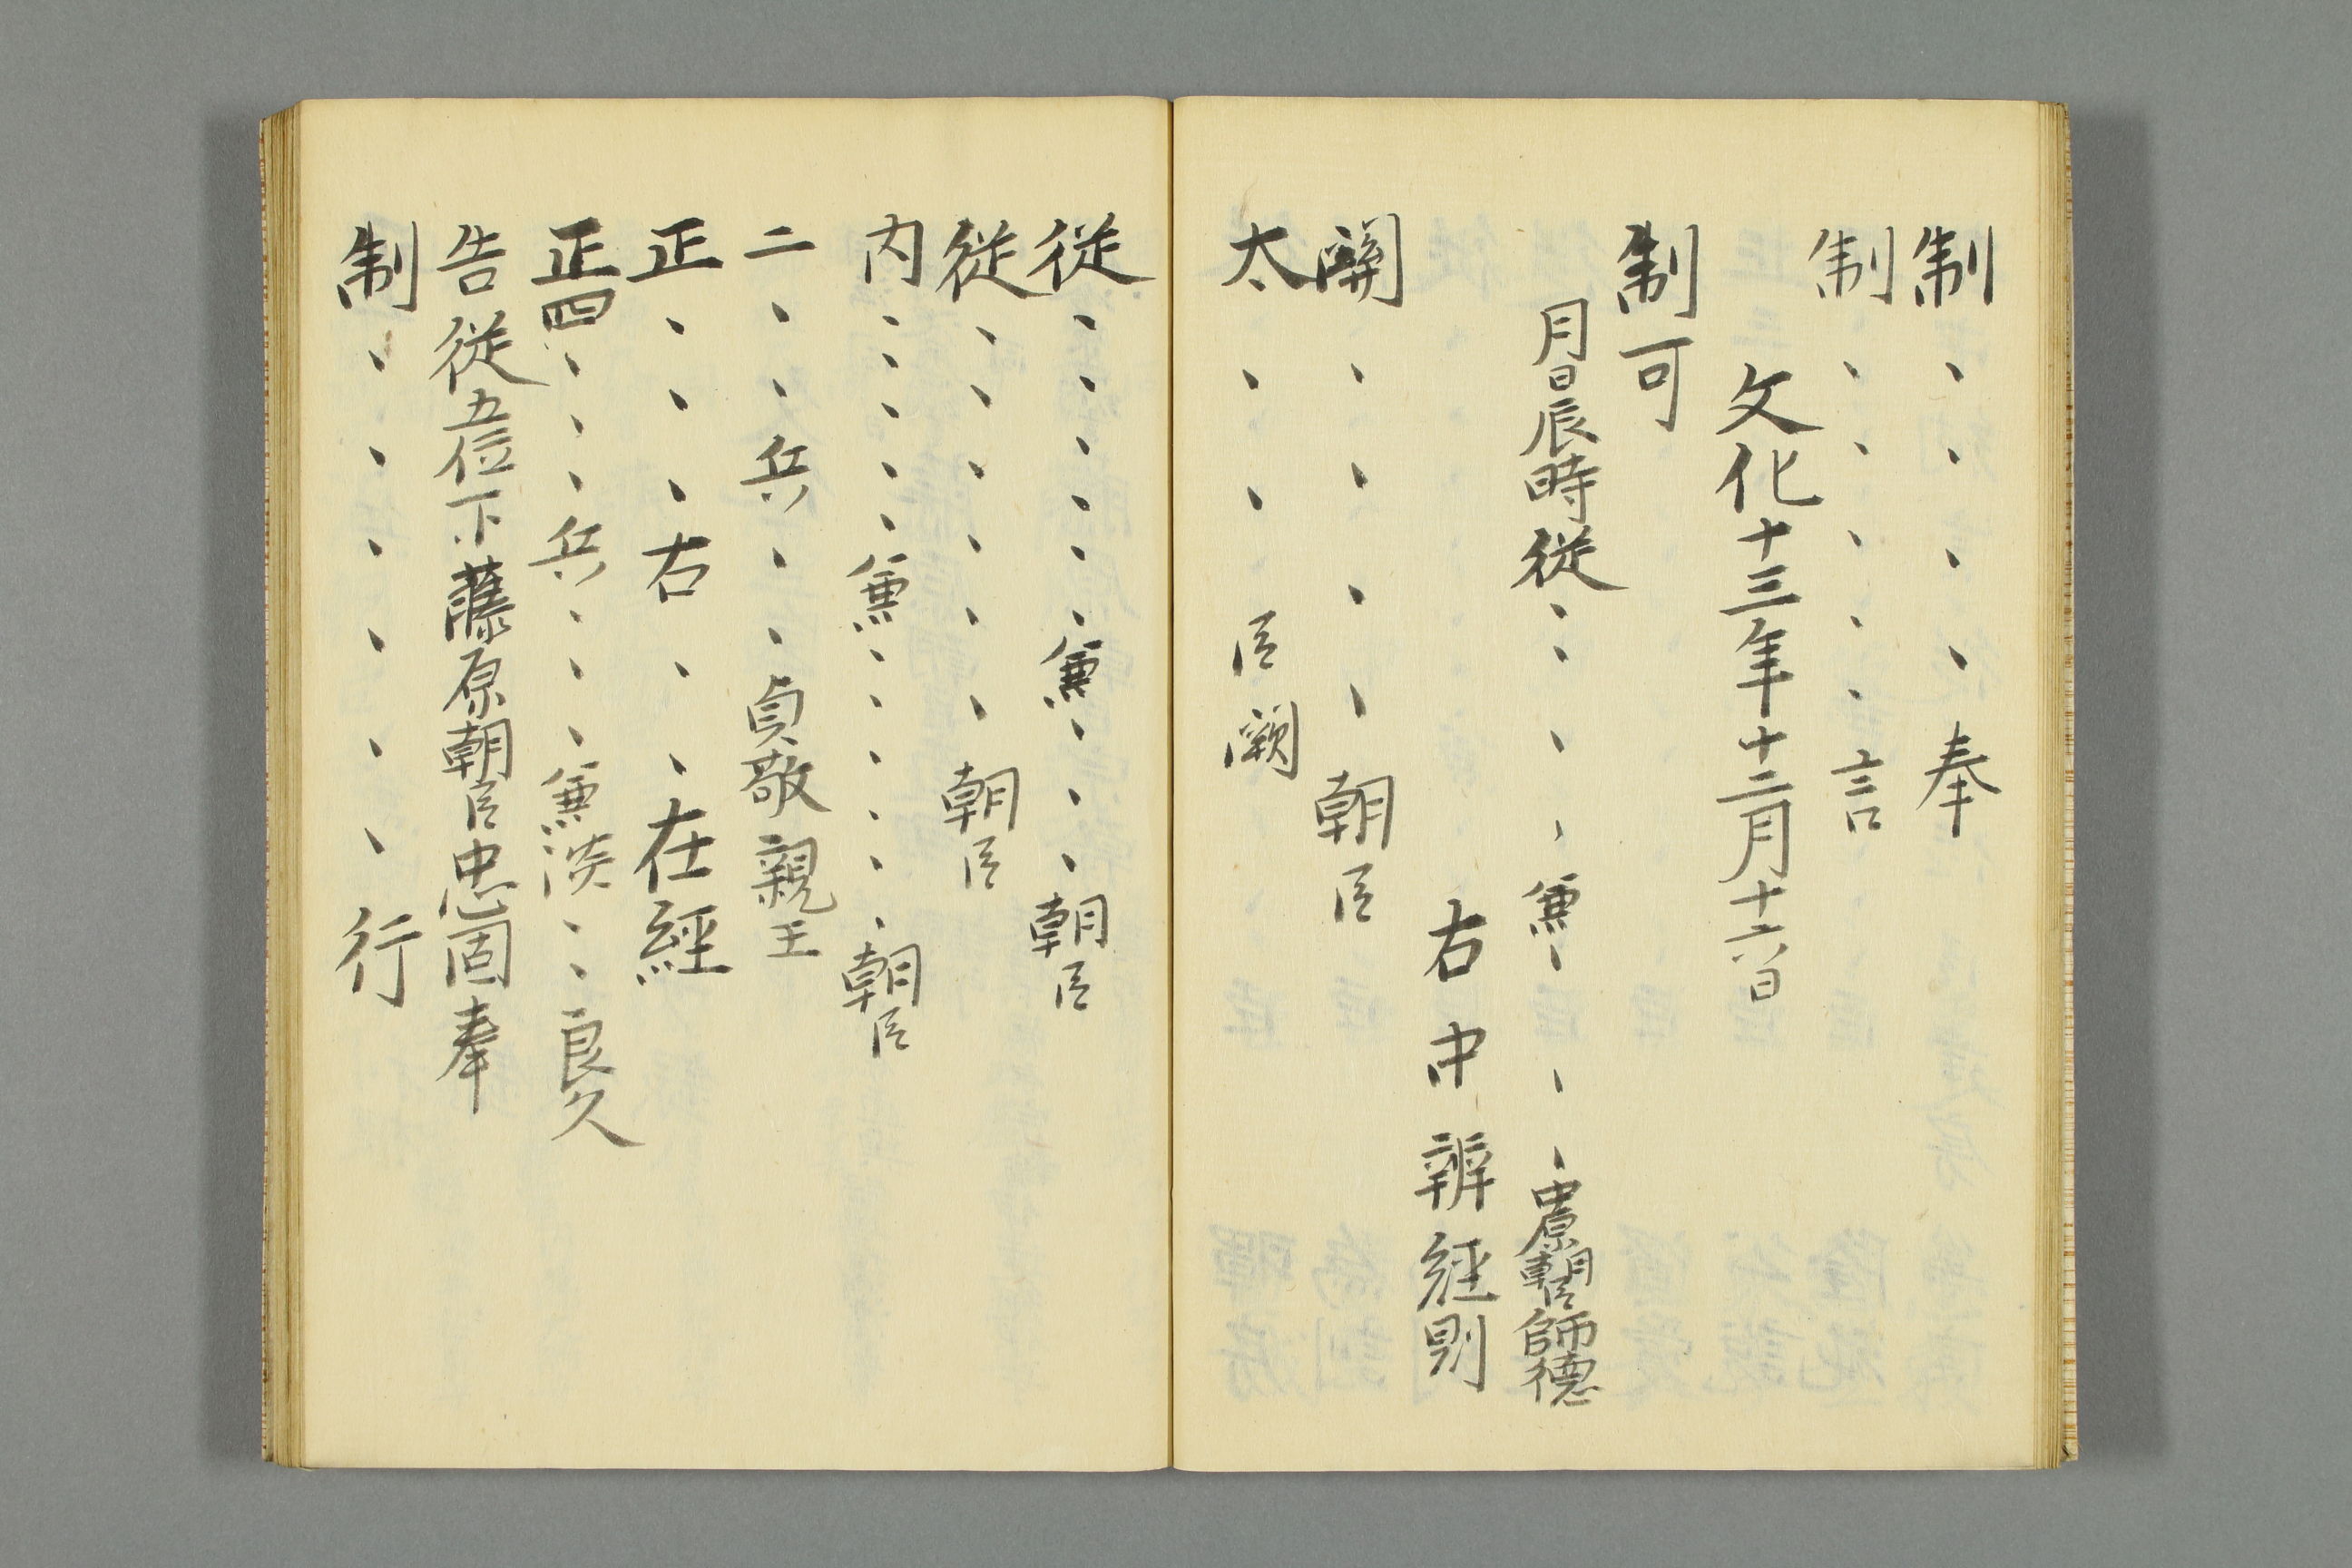 制、、、、奉
制、、、、、言
文化十三年十二月十六日
制可
月日辰時従、、、、兼、、、中原朝臣師徳
右中辨経則
関、、、、朝臣
太、、臣闕
従、、、、、、兼、、、朝臣
従、、、、、、朝臣
内、、、、、兼、、、、、朝臣
二、、兵、、貞敬親王
正、、、右、、在経
正四、、、兵、、、兼淡、、良久
告従五位下藤原朝臣忠固奉
制、、、、、、行